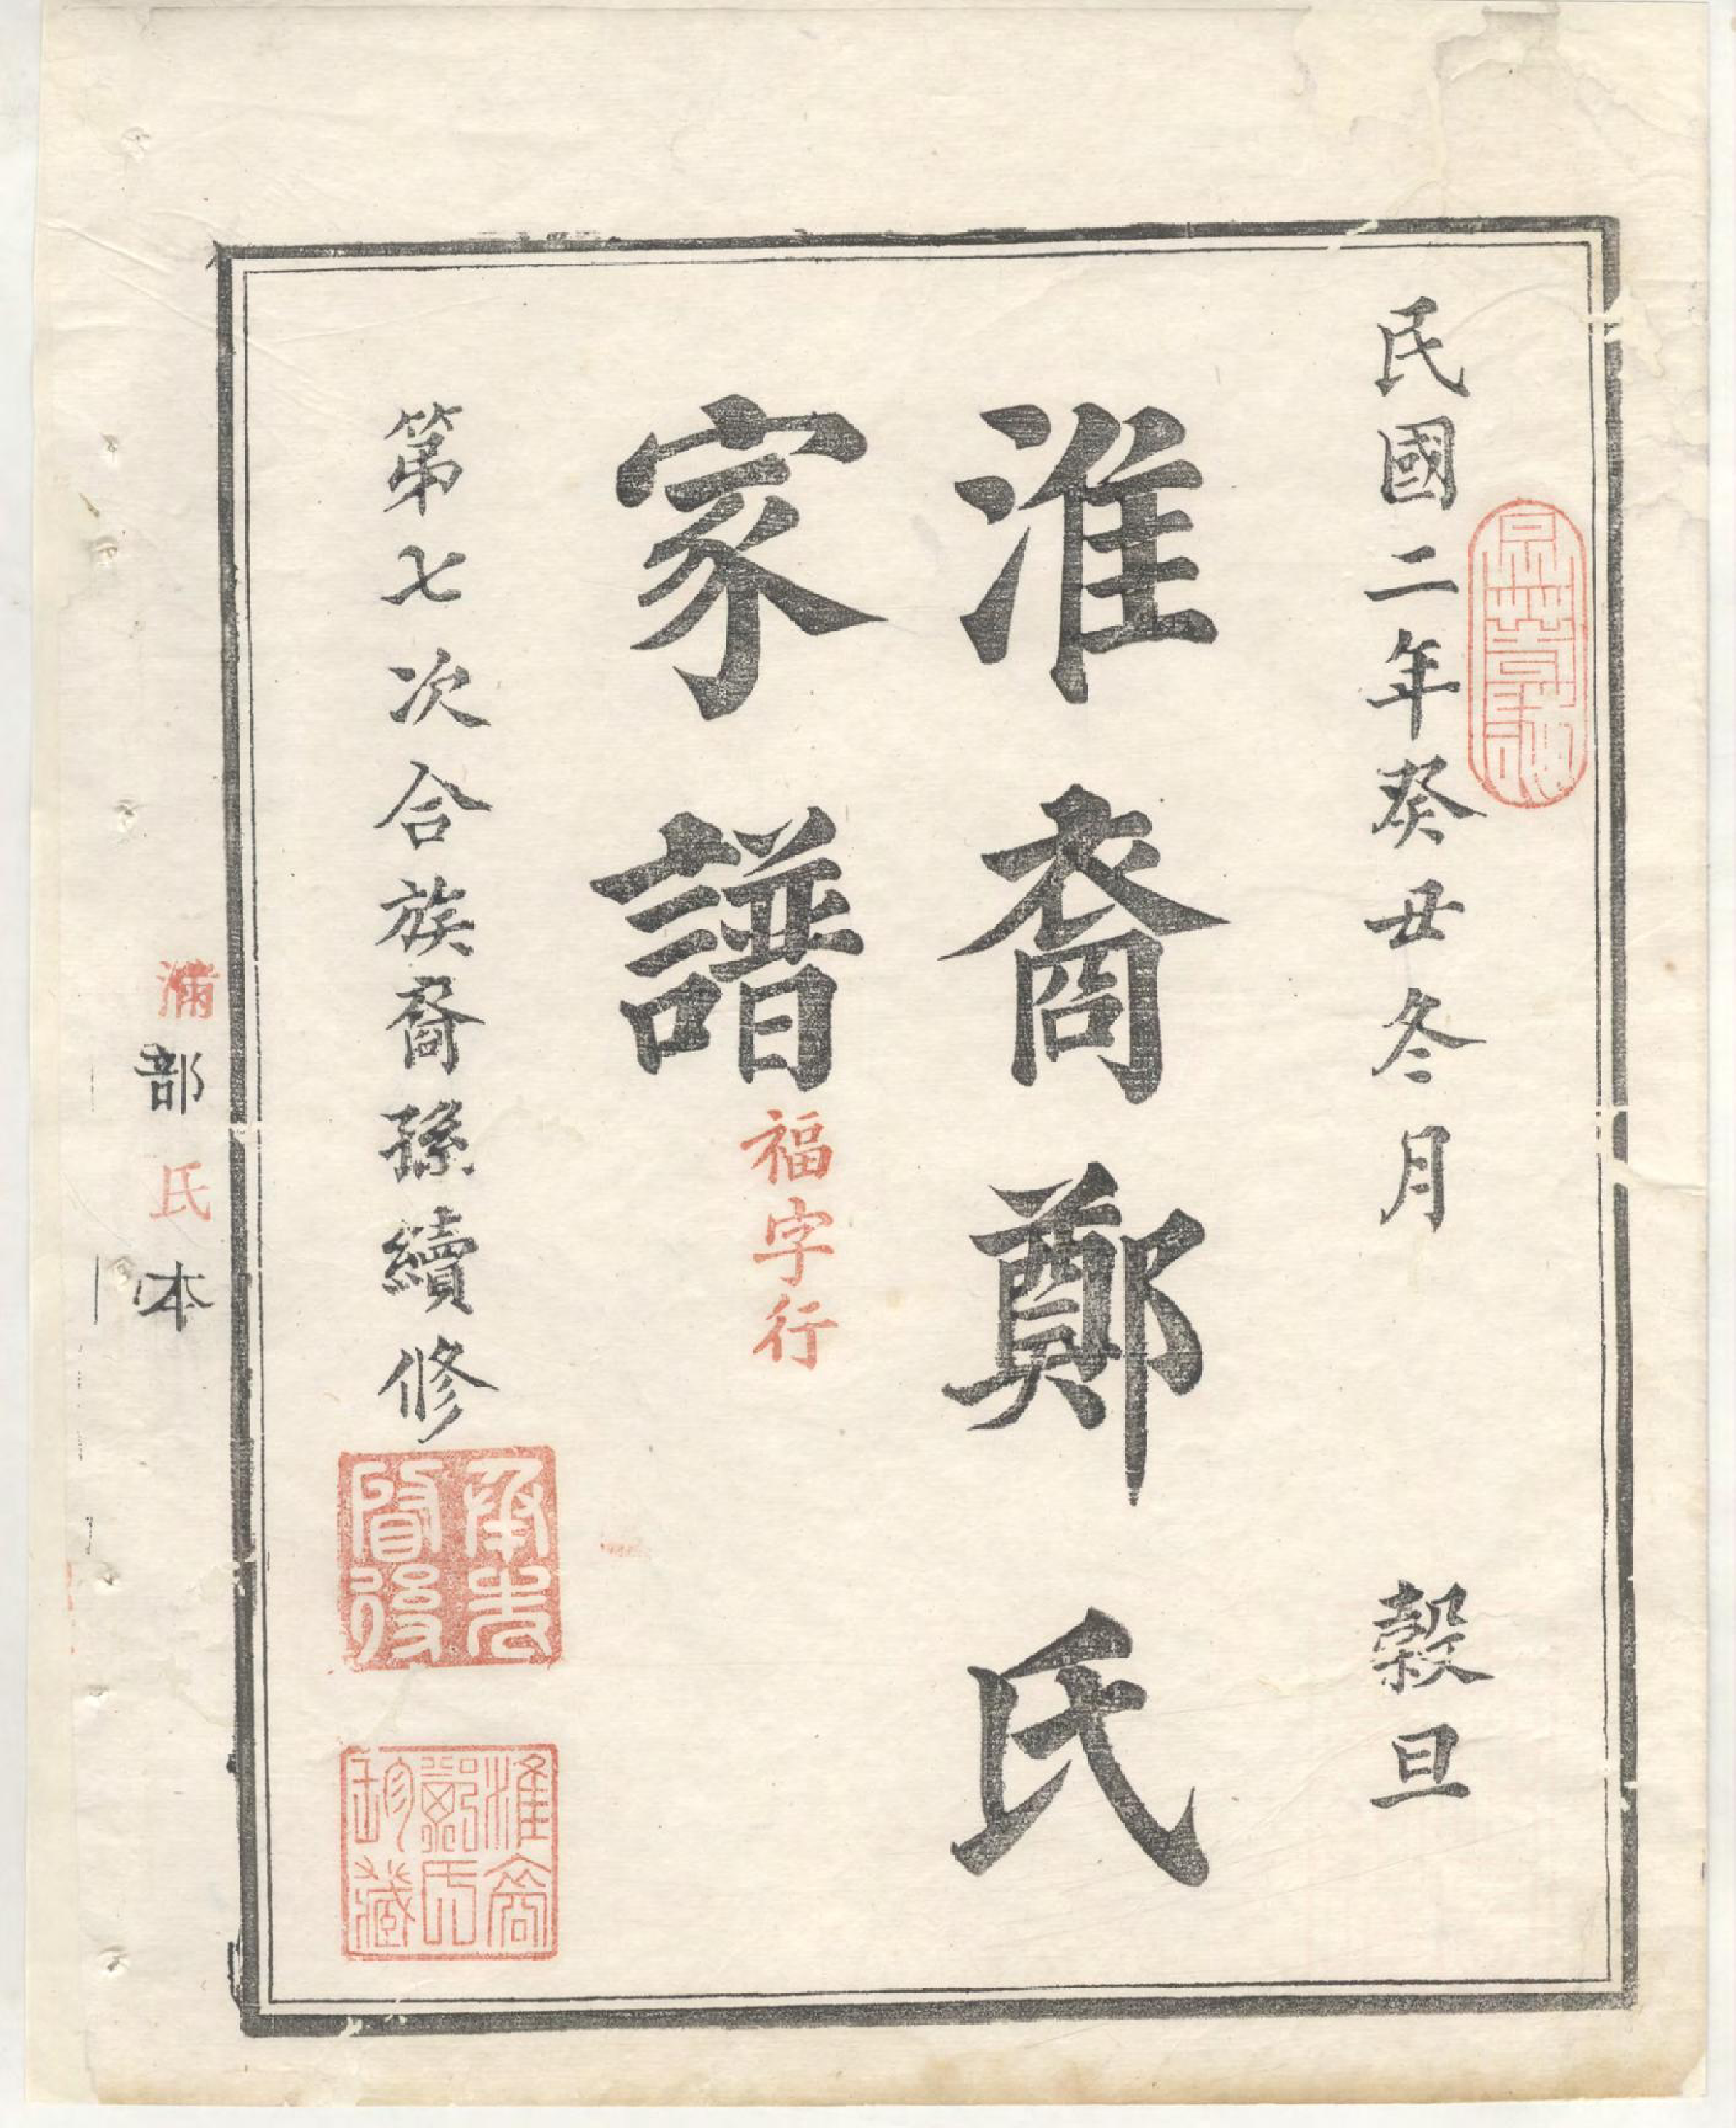 民國二年癸丑冬月 穀旦
淮裔鄭氏
家譜
福字行
第七次合族裔孫續修
承先啓後
淮裔鄭氏珍藏
部氏本